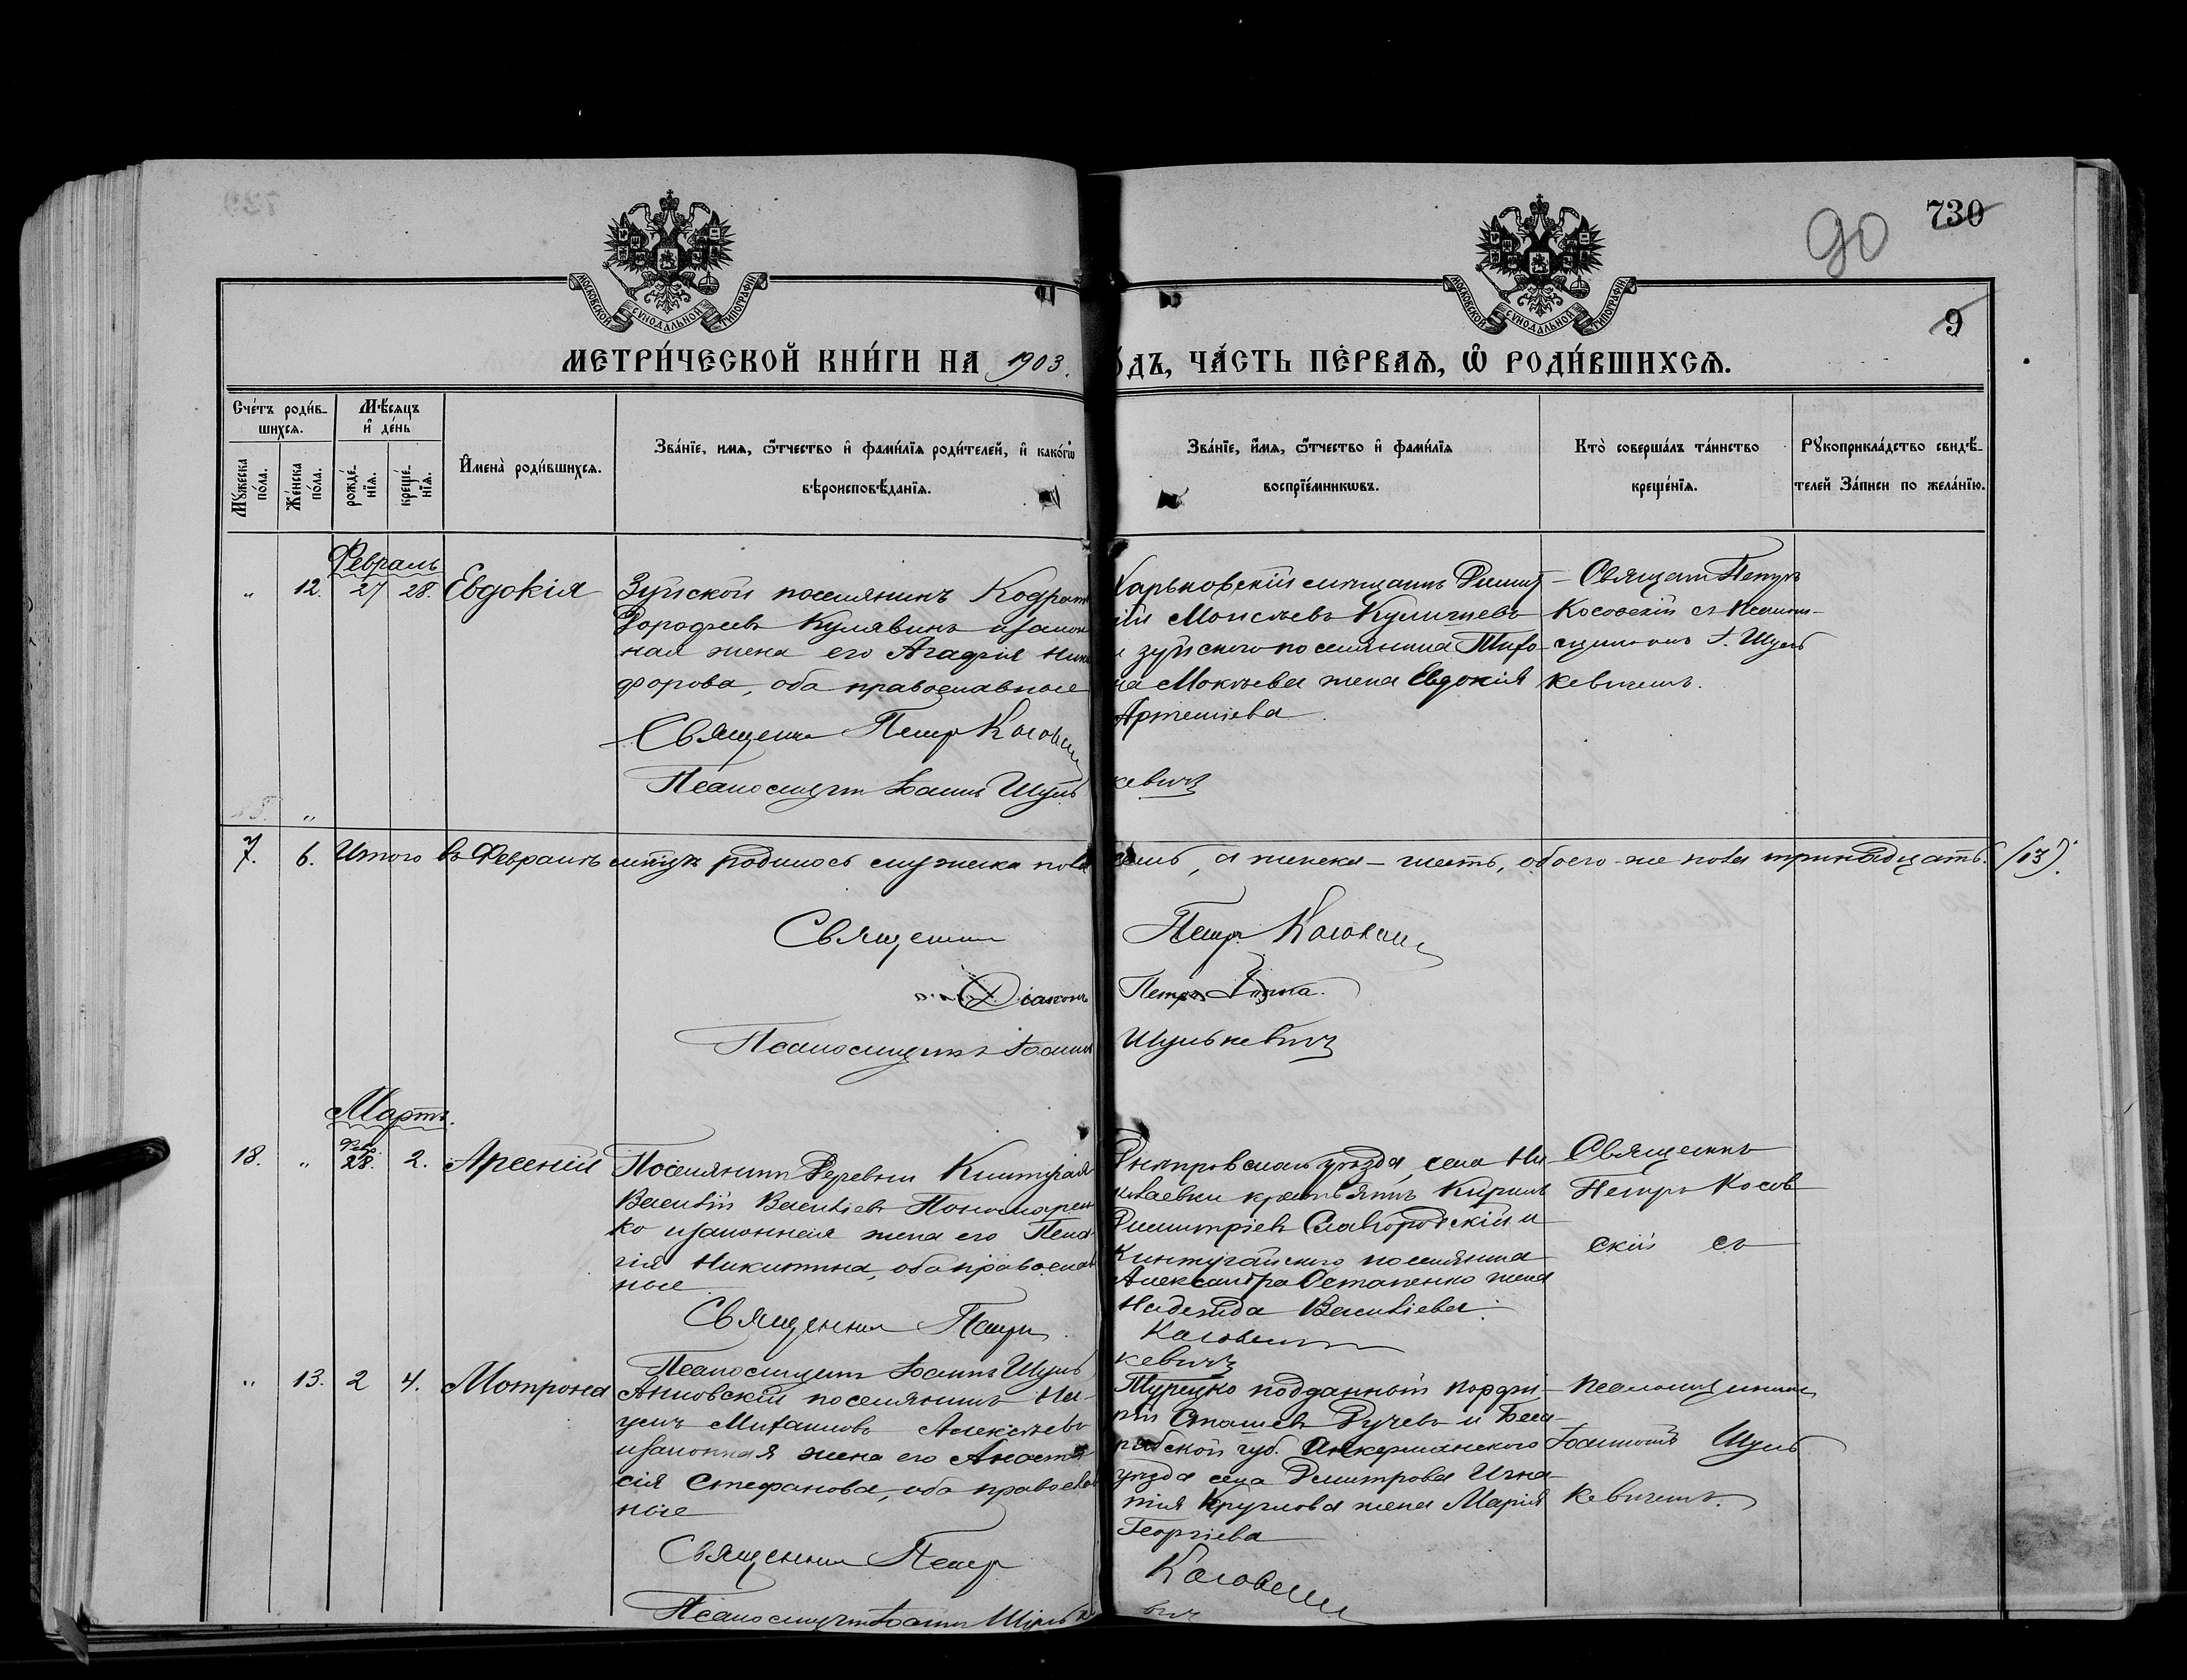 730
90
9
МОСКОВСКОЙ СѴНОДАЛЬНОЙ ТИПОГРАФІИ
МОСКОВСКОЙ СѴНОДАЛЬНОЙ ТИПОГРАФІИ
МЕТРИ́ЧЕСКОЙ КНИ́ГИ НА 1903.
О́ДЪ, ЧА́СТЬ ПЕ́РВАѦ, Ѡ҆ РОДИ́ВШИХСѦ.
Сче́тъ роди́в-
шихсѧ.
Мꙋ́жеска по́ла.
Же́нска по́ла.
Мѣ́сѧцъ
и҆ де́нь
рожде́-
нїѧ.
креще́-
нїѧ.
И҆мена̀ роди́вшихсѧ.
Зва́нїе, имѧ, ѻ҆́тчество и҆ фами́лїѧ роди́телей, и҆ како́гѡ
вѣроисповѣ́данїѧ.
Зва́нїе, и҆́мѧ, ѻ҆́тчество и҆ фами́лїѧ
воспрїе́мникѡвъ.
Кто̀ соверша́лъ та́инство
креще́нїѧ.
Рꙋкоприкла́дство свидѣ́-
телей За́писи по жела́нїю.
Февраль
" 12. 27 28. Евдокія
Зуйской поселянинъ Кодрат
Дорофеевъ Кулявинъ и закон
ная жена его Агафія Ники
форова, оба православные
Священ Петр Косовск
Псаломщик Іоаннъ Шуль
Харьковскій мѣщанинъ Димит-
рій Моисѣевъ Куличневъ
и зуйского поселянина Тихо-
на Мокѣева жена Евдокія
Артеміева.
кевичъ
Священ Петръ
Косовскій съ Псалом-
щикомъ І. Шуль
кевичемъ.
7. 6. Итого въ Февралѣ мѣсяцѣ родилось мужеска пола
семь, а женска - шесть, обоего же пола тринадцать. (13).
Священник
Петр Косовский
Діаконъ
Петръ
Псаломщикъ Іоаннъ
Шулькевичъ
Мартъ.
18. " Фев. 28. 2. Арсеній
Поселянинъ Деревни Кинтугая
Василій Васильевъ Пономарен
ко и законная жена его Пела-
гія Никитина, оба православ
ные
Священник Петръ
Псаломщик Іоаннъ Шуль
Днѣпровскаго уѣзда, села Ни
колаевки крестьянинъ Кирилъ
Димитріевъ Славгородскій и
Кинтугайского поселянина
Александра Остапенко жена
Надежда Васильева.
Косовский
кевичъ
Священникъ
Петръ Косов
скій съ
" 13. 2 4. Мотрона
Анновскій поселянинъ На-
умъ Михаиловъ Алексѣевъ
и законная жена его Анаста
сія Стефанова, оба православ
ные
Священник Петр
Псаломщик Іоанн Шульке
Турецко подданный Порфи-
рій Сташевъ Дучевъ и Беса-
рабской губ. Аккерманского
уѣзда села Димитрова Игна-
тія Круглова жена Марія
Георгіева
Косовский
вич
псаломщикомъ
Іоанномъ Шуль
кевичемъ.